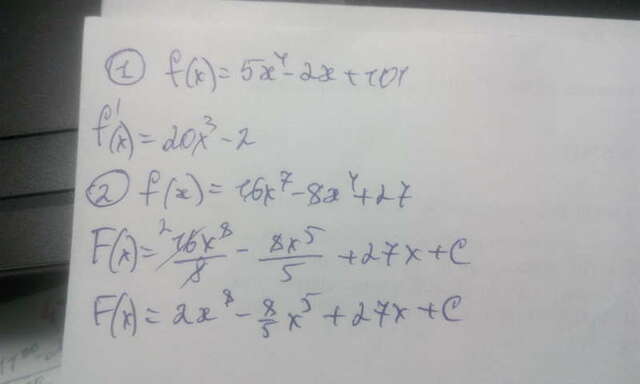 ① f(x) = 5x⁴ - 2x + 101
f'(x) = 20x³ - 2
② f(x) = 16x⁷ - 8x⁴ + 27
F(x) = ²16x⁸/8 - 8x⁵/5 + 27x + C
F(x) = 2x⁸ - 8/5 x⁵ + 27x + C